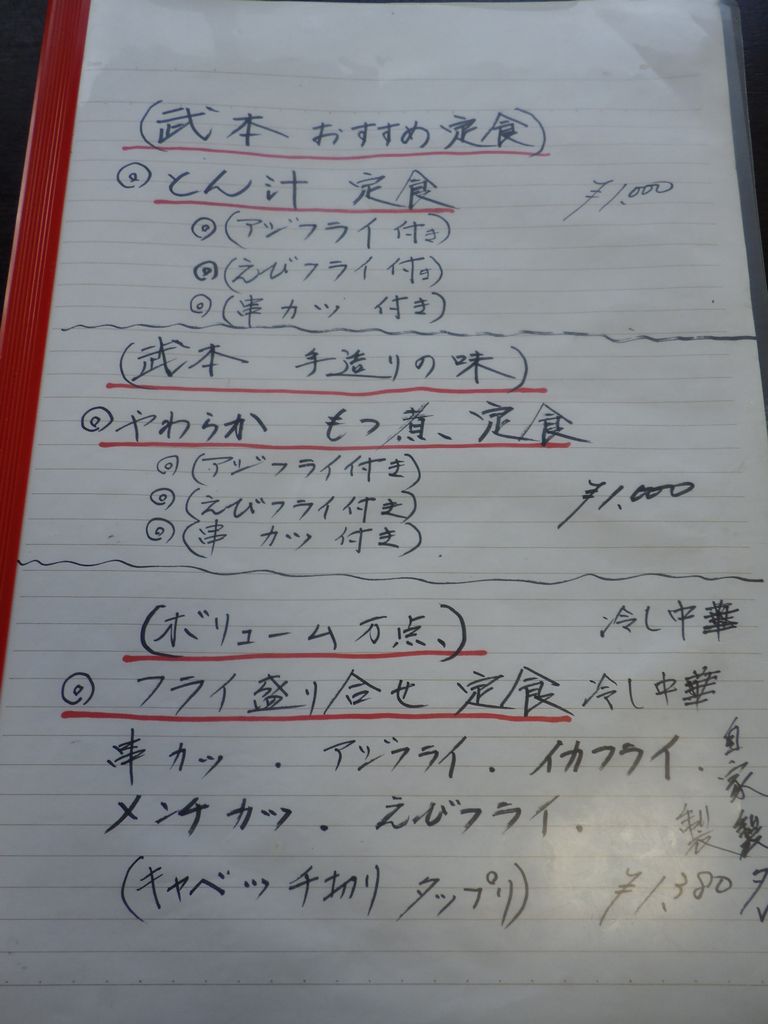 (武本 おすすめ定食)
◎ とん汁 定食 ¥1,000
◎(アジフライ付き)
◎(えびフライ付き)
◎(串カツ 付き)
(武本 手造りの味)
◎ やわらか もつ煮、定食
◎(アジフライ付き)
◎(えびフライ付き) ¥1,000
◎(串 カツ 付き)
(ボリューム万点、) 冷し中華
◎ フライ盛り合せ 定食 冷し中華
串カツ . アジフライ . イカフライ . 自家
メンチカツ . えびフライ . 製 製
(キャベツ千切り タップリ) ¥1,380